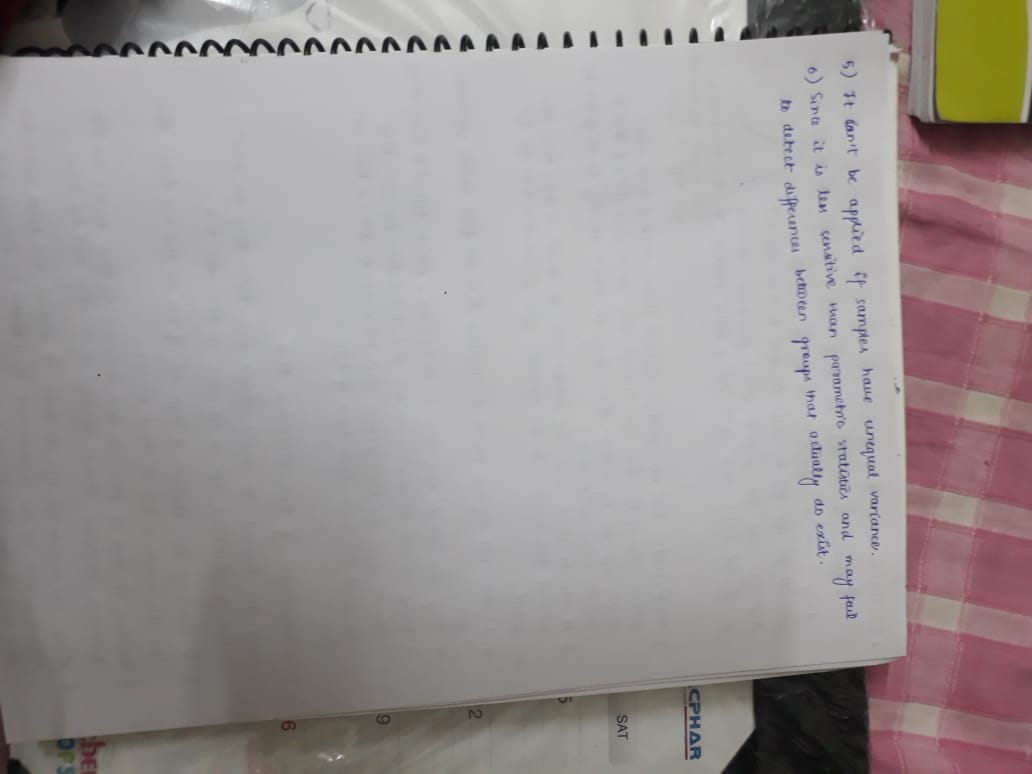 5) It Can't be applied if samples have unequal variance.
6) Since it is less sensitive than parametric statistics and may fail
to detect differences between groups that actually do exist.
CPHAR
SAT
5
2
9
6